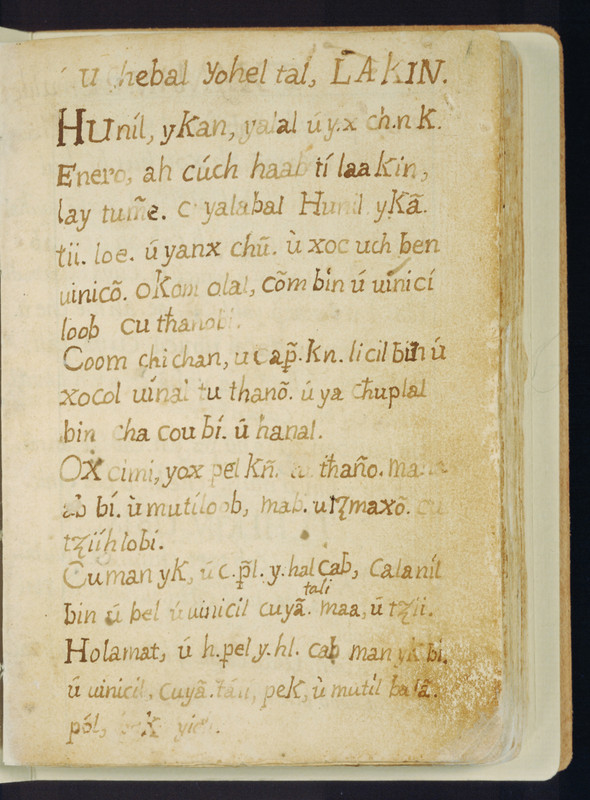 U chebal yohel tal, LAKIN.
HUnil, ykan, yalal ú y.x ch.n k.
Enero, ah cúch haab tí laa kin,
lay tum̃e. c yalabal Hunil ykã.
tii. loe. ú yanx chũ. ù xoc uch ben
uinicõ. okom olal, cõm bin ú uinicí
loob cu ŧhanobi.
Coom chichan, u cap̃. kn. licil bin ú
xocol uínal tu thanõ. ú ya cħuplal
bin cha cou bí. ú hanal.
OX cimi, yox pel kñ. ŧhaño.
ab bí. ù mutíloob, mab. utzmaxõ. cu
tzííhlobi.
Cuman yk, ú c.p̃l. y.hal cab, calaníl
tali
bin ú bel ú uinicil cuyã. maa, ú tzii.
Holamat, ú h.pel y.hl. cab man yk bí.
ú uinicil, cuyã. tali, pek, ù mutíl balã.
pól,